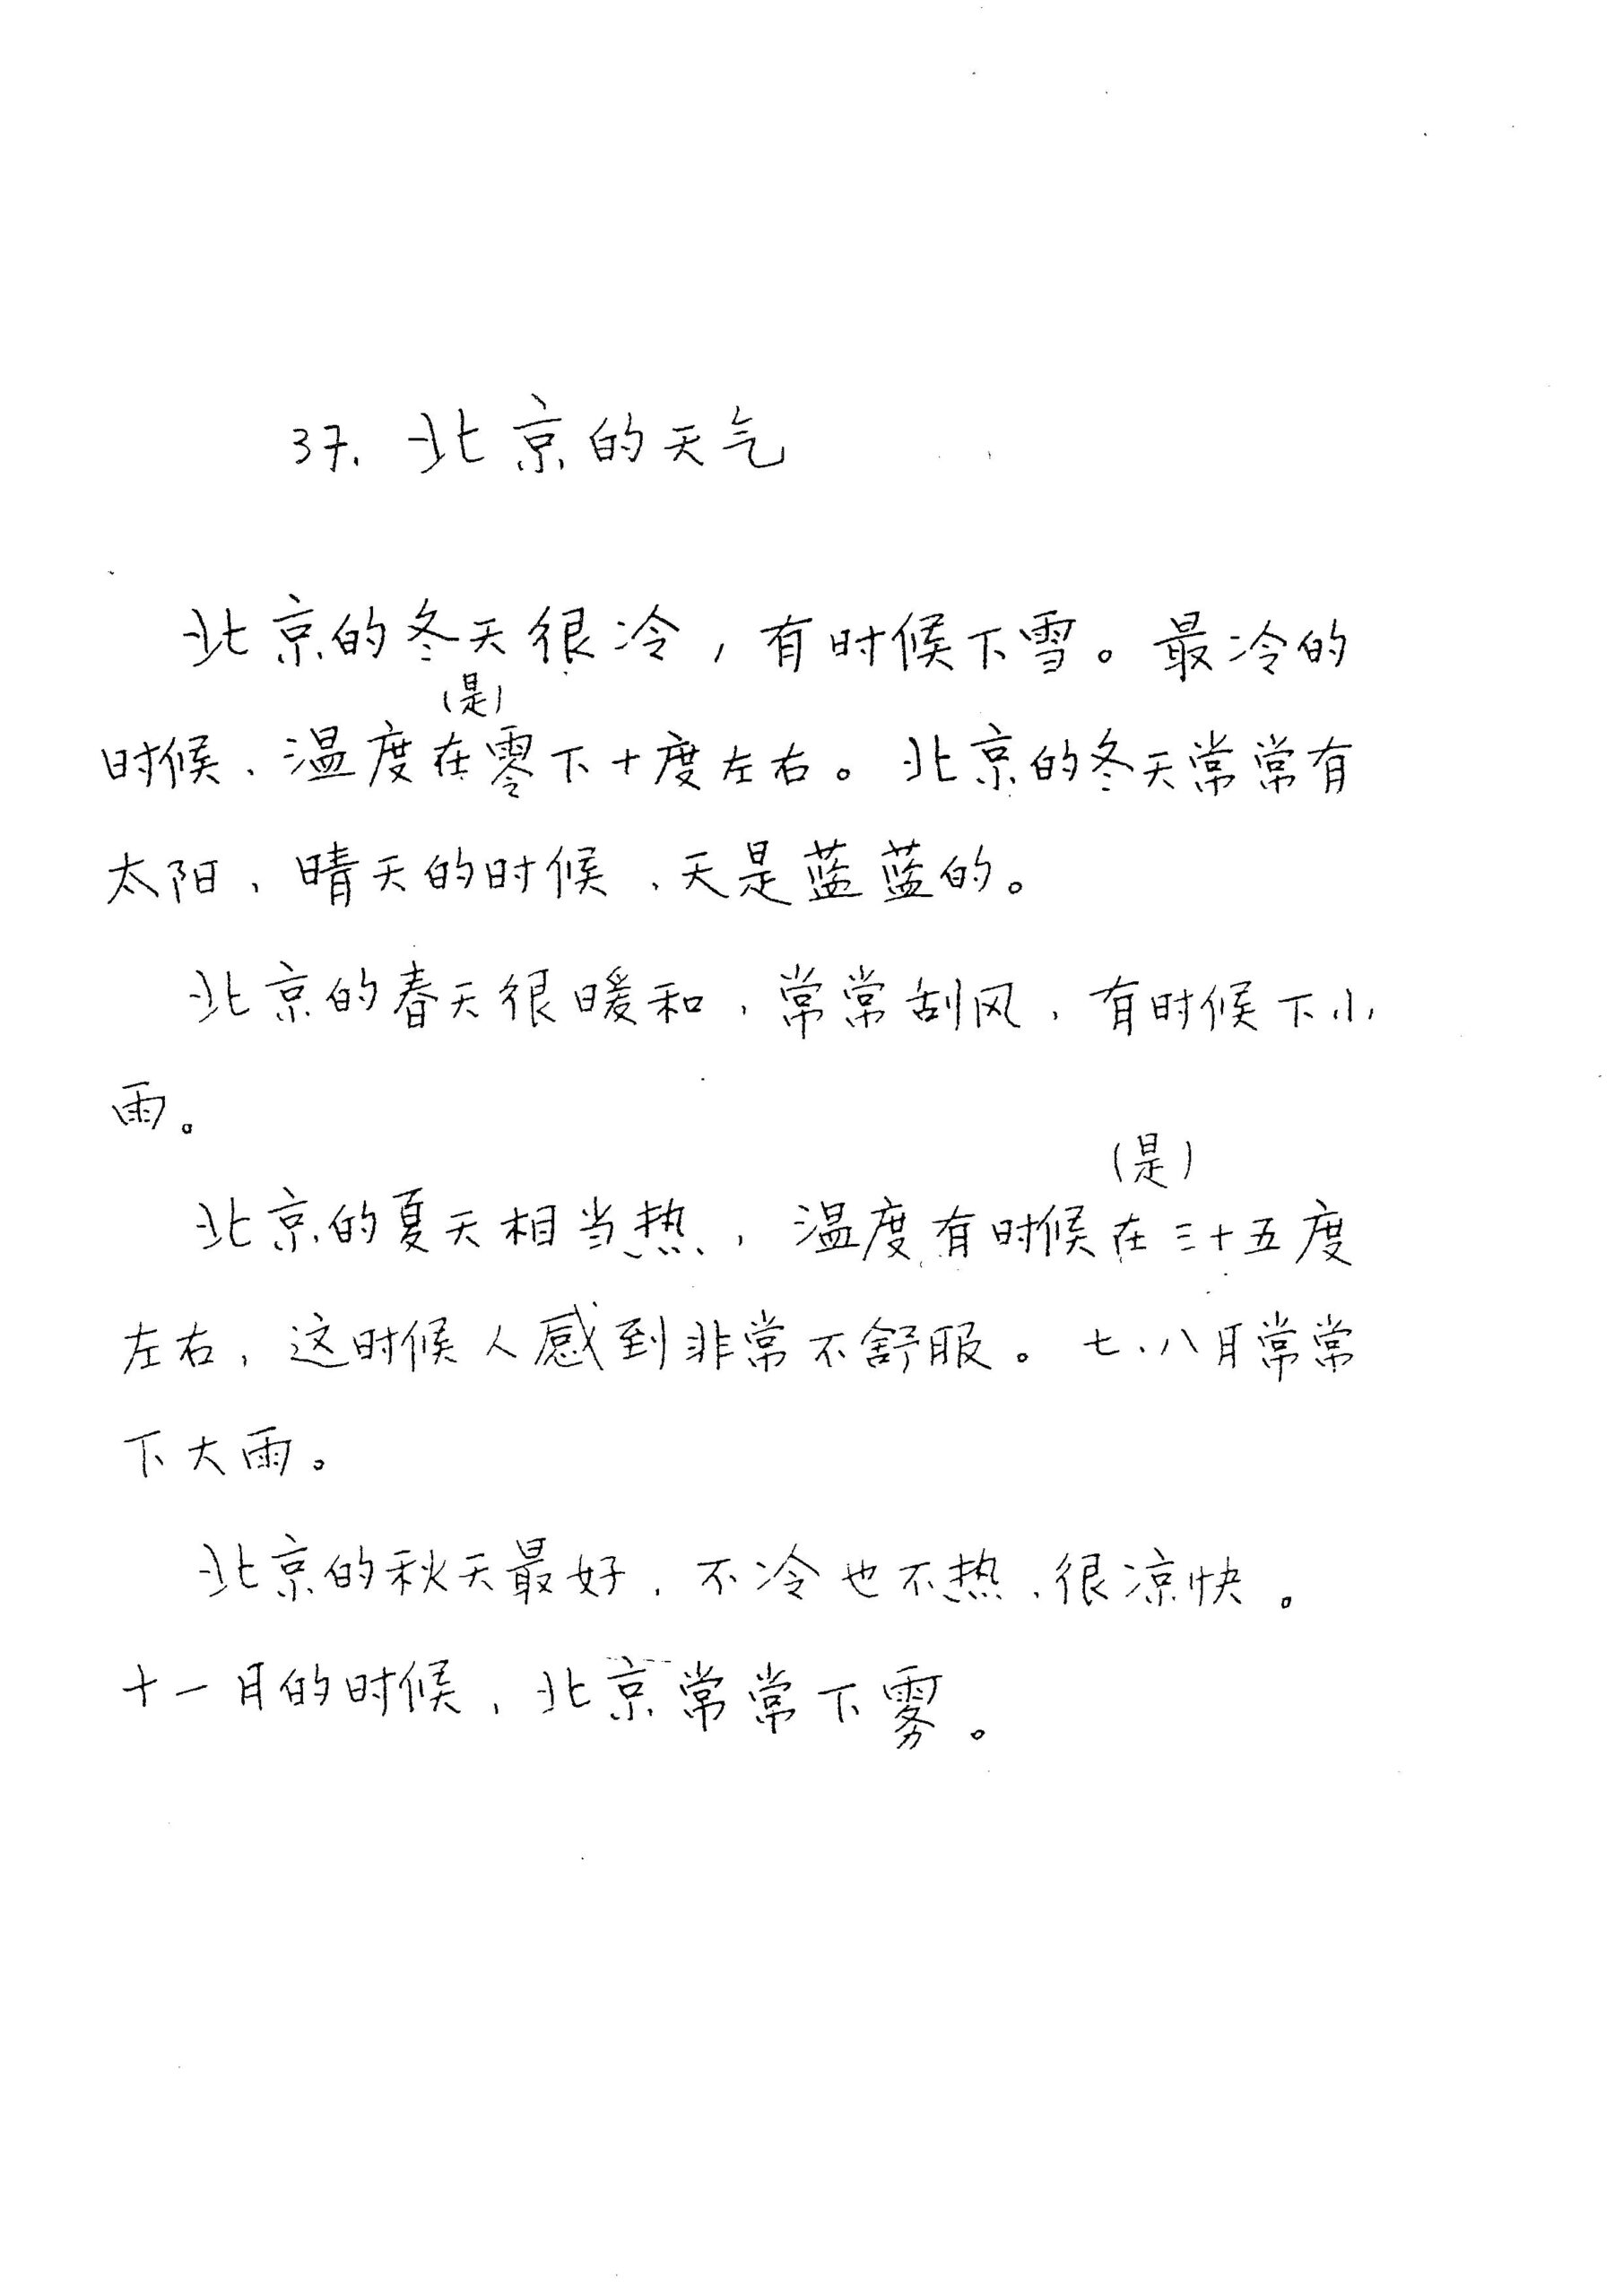 37. 北京的天气
北京的冬天很冷，有时候下雪。最冷的
(是)
时候、温度在零下十度左右。北京的冬天常常有
太阳、晴天的时候、天是蓝蓝的。
北京的春天很暖和、常常刮风、有时候下小
雨。
(是)
北京的夏天相当热、温度有时候在三十五度
左右，这时候人感到非常不舒服。七、八月常常
下大雨。
北京的秋天最好、不冷也不热、很凉快。
十一月的时候、北京常常下雾。